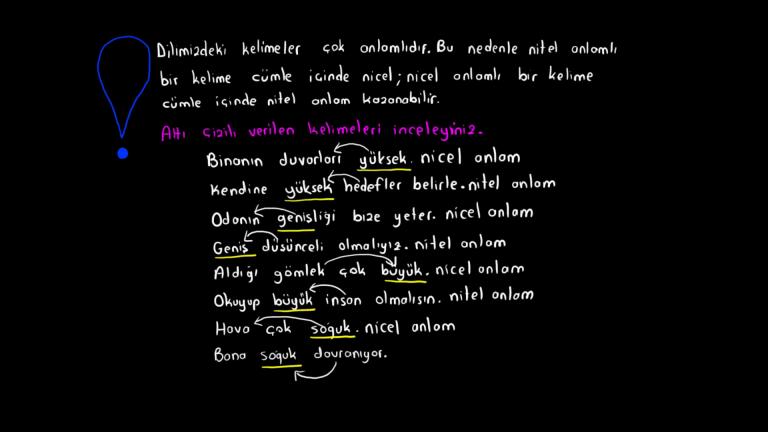 Dilimizdeki kelimeler çok anlamlıdır. Bu nedenle nitel anlamlı
bir kelime cümle içinde nicel; nicel anlamlı bir kelime
cümle içinde nitel anlam kazanabilir.
Altı çizili verilen kelimeleri inceleyiniz.
Binanın duvarları yüksek. nicel anlam
Kendine yüksek hedefler belirle. nitel anlam
Odanın genişliği bize yeter. nicel anlam
Geniş düşünceli olmalıyız. nitel anlam
Aldığı gömlek çok büyük. nicel anlam
Okuyup büyük insan olmalısın. nitel anlam
Hava çok soğuk. nicel anlam
Bana soğuk davranıyor.